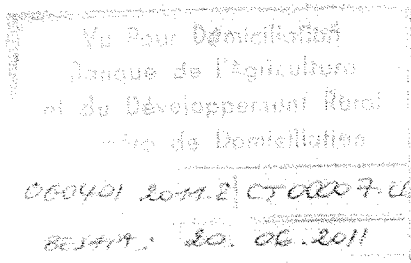 Vu Pour Domiciliation
Banque de l'Agriculture
et du Développement Rural
de Domiciliation
060401 2011.2 CT 00007
BEJAIA: 20. 06. 2011